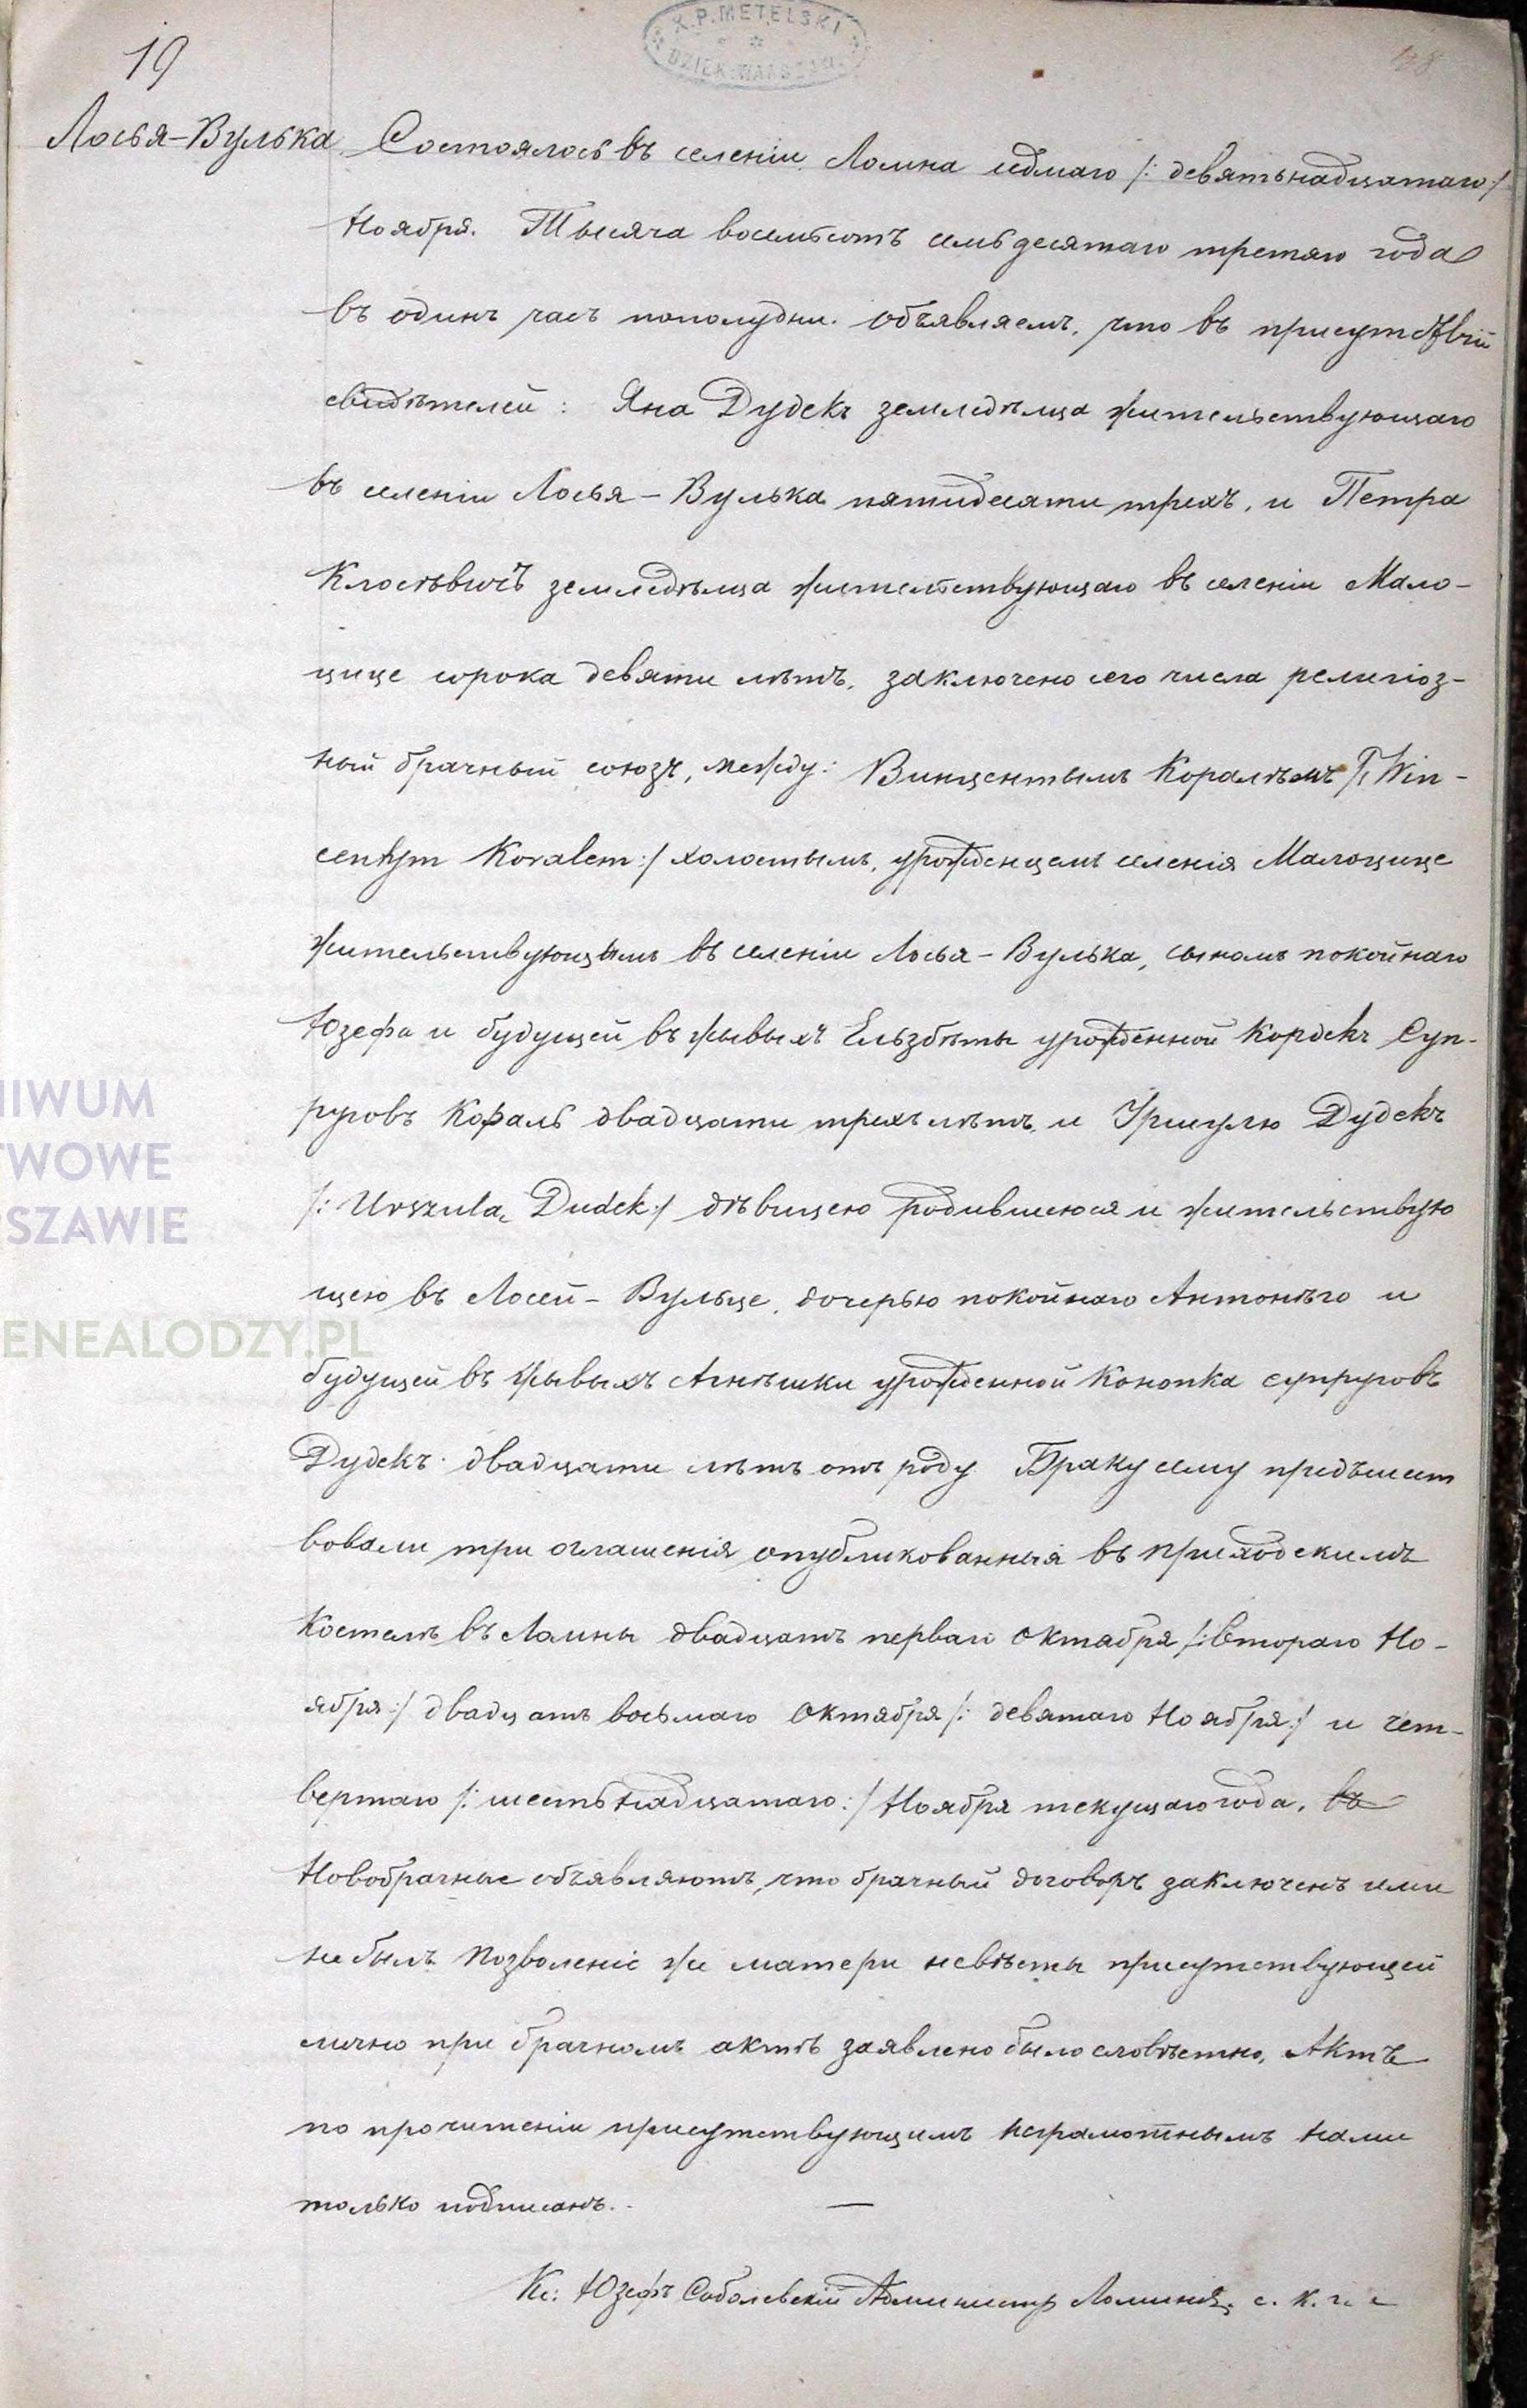 X. P. METELSKI
DZIEK. WARSZAW.
19
Лосья-Вулька
Состоялось въ селеніи Ломна седмаго /: девятьнадцатаго :/
Ноября. Тысяча восемьсотъ семьдесятаго третяго года
въ одинъ часъ пополудни. объявляемъ, что въ присутствіи
свидѣтелей: Яна Дудекъ земледѣльца жительствующаго
въ селеніи Лосья-Вулька пятидесяти трехъ, и Петра
земледѣльца жительствующаго въ селеніи Мало-
цице сорока девяти лѣтъ, заключено сего числа религіоз-
ный брачный союзъ, между: Винцентымъ Коралѣмъ /: Win-
centym Koralem :/ холостымъ, урожденцемъ селенія Малоцице
жительствующымъ въ селеніи Лосья-Вулька, сыномъ покойнаго
Юзефа и будущей въ жывыхъ Ельзбѣты урожденной Кордекъ Суп-
руговъ Кораль двадцати трехъ лѣтъ, и Уршулю Дудекъ
/: Urszulą Dudek :/ дѣвицею родившеюся и жительствую
щею въ Лосей-Вульце, дочерью покойнаго Антонѣго и
будущей въ жывыхъ Агнѣшки урожденной Конопка супруговъ
Дудекъ двадцати лѣтъ отъ роду. Браку сему предъшест
вовали три оглашенія опубликованныя въ приходскимъ
Костелѣ въ Ломны двадцать перваго Октября /: втораго Но-
ября :/ двадцать восьмаго Октября /: девятаго Ноября :/ и чет-
вертаго /: шестьнадцатаго :/ Ноября текущаго года. въ
Новобрачные объявляютъ, что брачный договоръ заключенъ ими
не былъ Позволеніе же матери невѣсты присутствующей
лично при брачномъ актѣ заявлено было словѣстно, Актъ
по прочитеніи присутствующимъ неграмотнымъ нами
только подписанъ. —
Кс: Юзефъ Соболевскій Администр
HIWUM
TWOWE
SZAWIE
ENEALODZY.PL